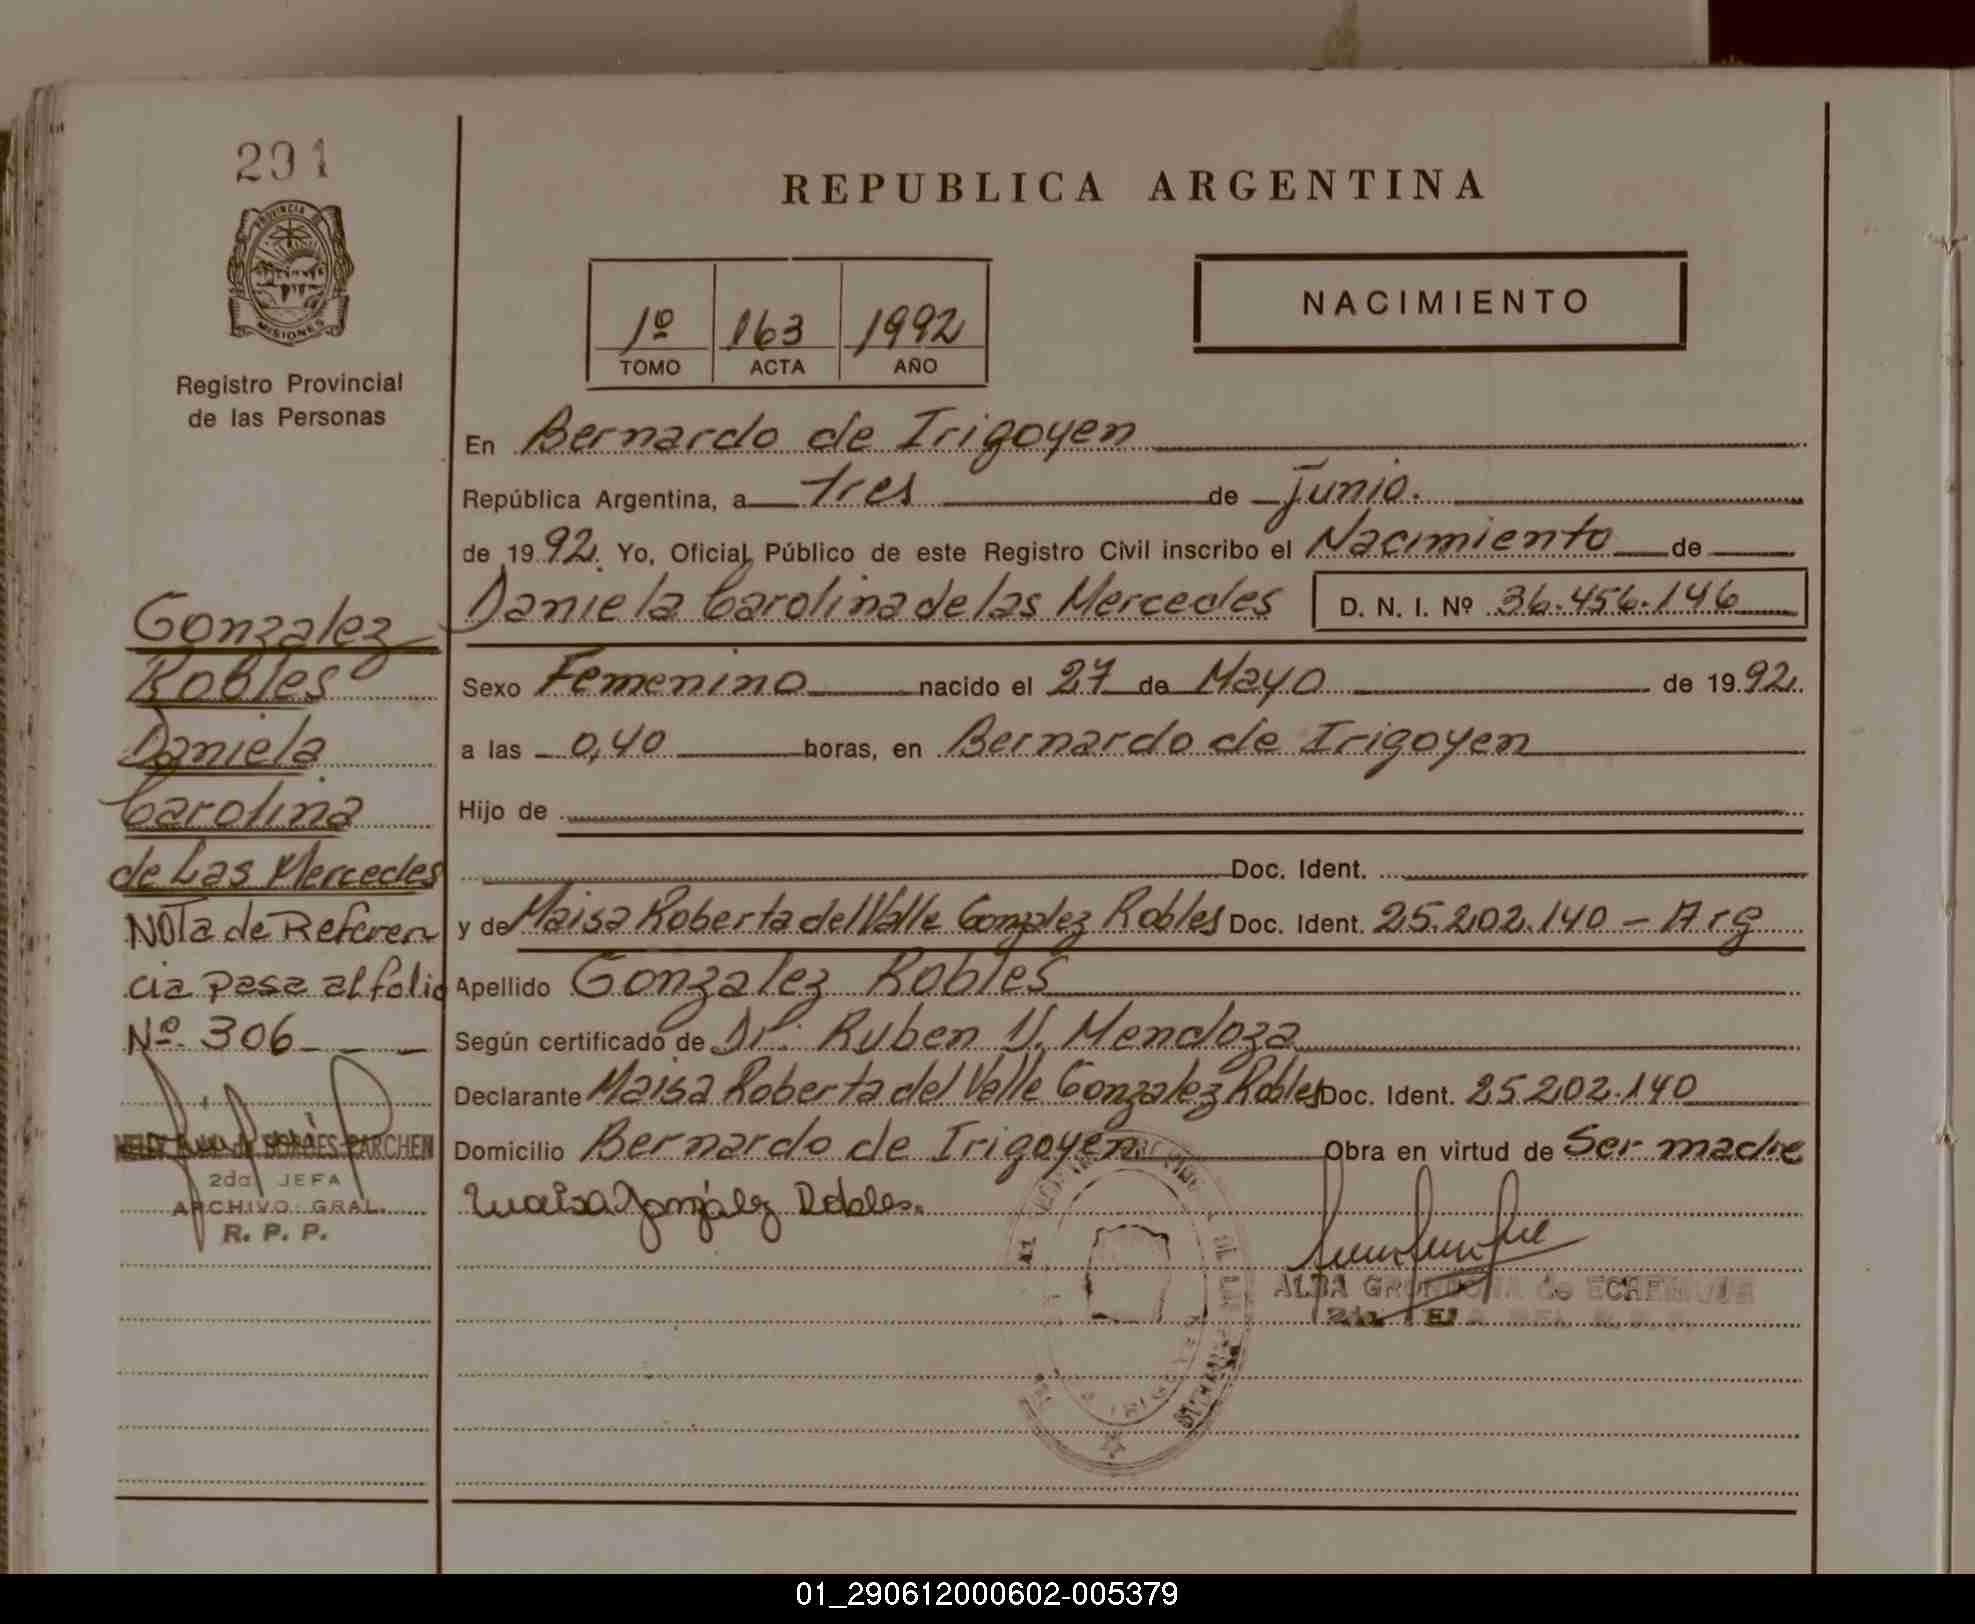 291
PROVINCIA DE
MISIONES
Registro Provincial
de las Personas
Gonzalez
Robles
Daniela
Carolina
de Las Mercedes
NOTa de Referen
cia pasa al folio
Nº 306
2da JEFA
ARCHIVO GRAL.
R. P. P.
REPUBLICA ARGENTINA
1º 163 1992
TOMO ACTA AÑO
NACIMIENTO
En Bernardo de Irigoyen
República Argentina, a tres de junio.
de 19 92. Yo, Oficial Público de este Registro Civil inscribo el Nacimiento de
Daniela Carolina de las Mercedes D. N. I. Nº 36.456.146
Sexo Femenino nacido el 27 de Mayo de 19 92.
a las 0,40 horas, en Bernardo de Irigoyen
Hijo de
Doc. Ident.
y de Maisa Roberta del Valle Gonzalez Robles Doc. Ident. 25.202.140 - Arg
Apellido Gonzalez Robles
Según certificado de Dr. Ruben V. Mendoza
Declarante Maisa Roberta del Valle Gonzalez Robles Doc. Ident. 25202.140
Domicilio Bernardo de Irigoyen Obra en virtud de Ser madre
Maisa González Robles.
ALBA GRONDONA de ECHEVERRIA
01_290612000602-005379